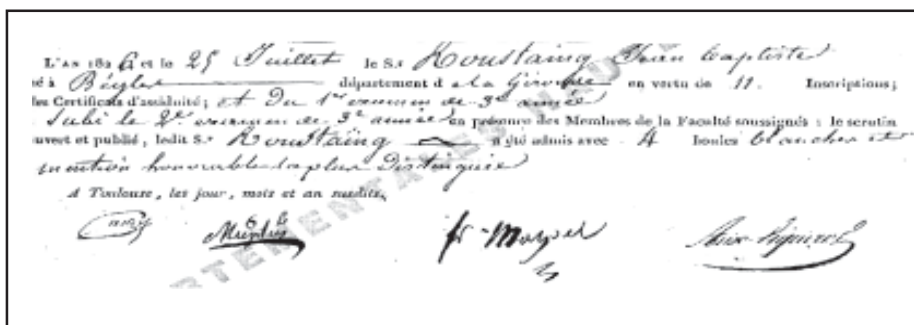 L'AN 1826 et le 25 Juillet le S.r Roustaing Jean Baptiste
né à Bègles département de la Gironde en vertu de 11. Inscriptions;
les Certificats d'assiduité; et Du 1er examen de 3e année
Subi le 2e examen de 3e année en présence des Membres de la Faculté soussignés : le scrutin
ouvert et publié, ledit S.r Roustaing a été admis avec 4 boules blanches et
mention honorable la plus Distinguée
A Toulouse, les jour, mois et an susdits,